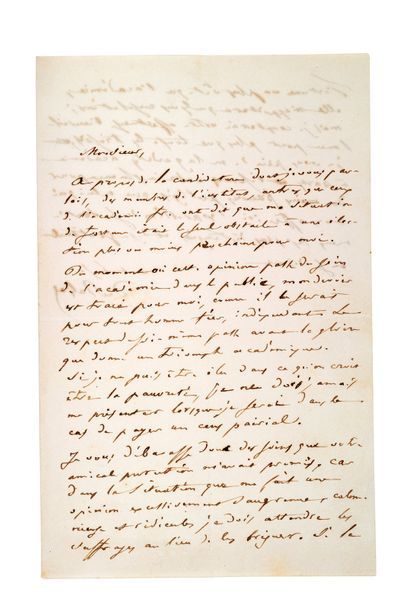 Monsieur,
A propos de la candidature dont je vous par-
lais, des membres de l'institut, autres que ceux
de l'académie fr. ont dit que ma situation
de fortune était le seul obstacle à une élec-
tion plus ou moins prochaine pour moi.
Du moment où cette opinion passe du sein
de l'académie dans le public, mon devoir
est tracé pour moi, comme il le serait
pour tout homme fier, indépendant. Le
respect de soi-même passe avant la gloire
que donne un triomphe académique.
Si je ne puis être élu dans ce qu'on croit
être la pauvreté, je ne dois jamais
me présenter lorsque je serai dans le
cas de payer un cens pairial.
Je vous débarasse donc des soins que votre
amical protection m'avait promis, car
dans la situation que me fait une
opinion excessivement saugrenue, calom-
nieuse et ridicule, je dois attendre les
suffrages au lieu de les briguer. Si le